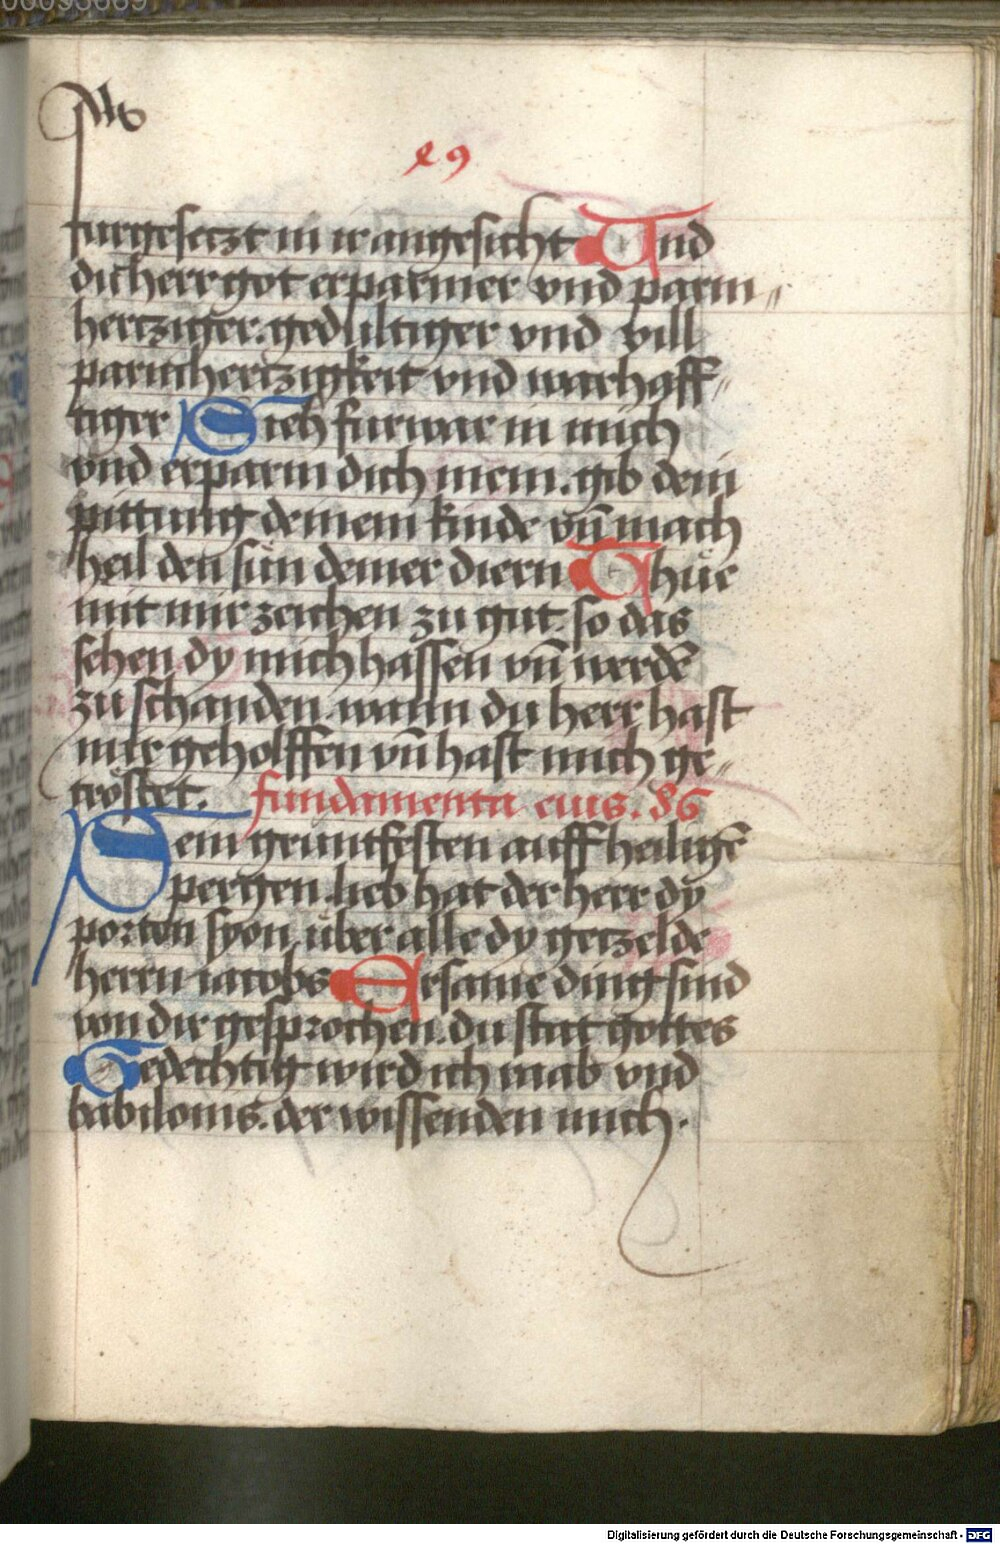 00093669
furgesetzt in ir angesicht Und
dich herr got erparmer vnd parm〃
hertziger. gedultiger vnd vill
parmhertzigkeit vnd warhaff〃
tiger Sich furwar in mich
vnd erparm dich mein. gib dein
pittung deinem kinde vn̄ mach
heil den sün deiner diern Thue
mit mir zeichen zu gut. so das
sehen dy mich hassen vn̄ werdē
zu schanden. wann du herr hast
mir geholffen vn̄ hast mich ge〃
tröstet. fundamenta eius. 86
Sein gruntfesten auff heiligē
pergen. lieb hat der herr dy
porten syon, über alle dy getzelde
herrn iacobs Ersame ding sind
von dir gesprochen. du stat gottes
Gedechtig wird ich raab vnd
babilonis. der wissenden mich.
Digitalisierung gefördert durch die Deutsche Forschungsgemeinschaft - DFG